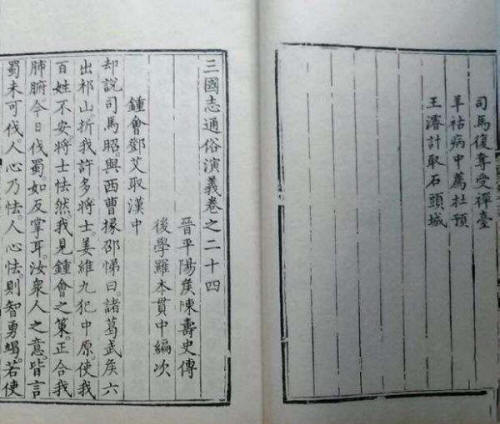 司馬復奪受禪臺
羊祜病中薦杜預
王濬計取石頭城
三國志通俗演義卷之二十四
晉平陽侯陳壽史傳
後學羅本貫中編次
鍾會鄧艾取漢中
却說司馬昭與西曹掾邵悌曰諸葛武侯六
出祁山折我許多將士姜維九犯中原使我
百姓不安將士怯然我見鍾會之策正合我
肺腑今日伐蜀如反掌耳汝衆人之意皆言
蜀未可伐人心乃怯人心怯則智勇竭若使